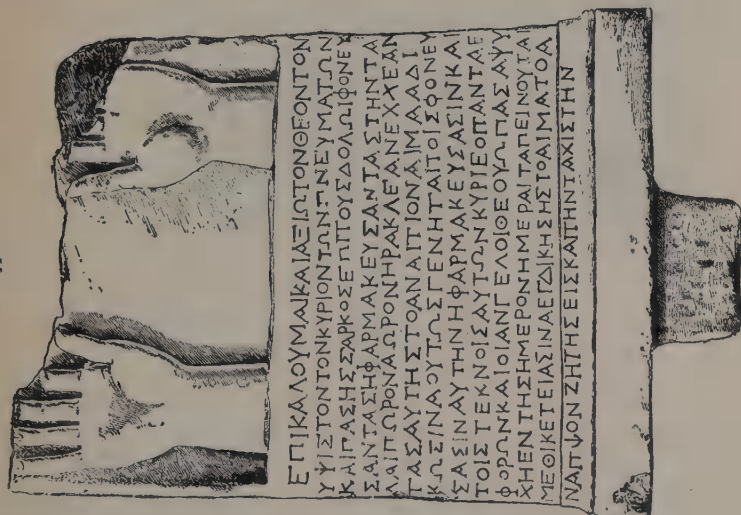 ΕΠΙΚΑΛΟΥΜΑΙΚΑΙΑΞΙΩΤΟΝΘΕΟΝΤΟΝ
ΥΨΙΣΤΟΝΤΟΝΚΥΡΙΟΝΤΩΝΠΝΕΥΜΑΤΩΝ
ΚΑΙΠΑΣΗΣΣΑΡΚΟΣΕΠΙΤΟΥΣΔΟΛΩΙΦΟΝΕΥ
ΣΑΝΤΑΣΗΦΑΡΜΑΚΕΥΣΑΝΤΑΣΤΗΝΤΑ
ΛΑΙΠΩΡΟΝΑΩΡΟΝΗΡΑΚΛΕΑΝΕΧΧΕΑΝ
ΤΑΣΑΥΤΗΣΤΟΑΝΑΙΤΙΟΝΑΙΜΑΑΔΙ
ΚΩΣΙΝΑΟΥΤΩΣΓΕΝΗΤΑΙΤΟΙΣΦΟΝΕΥ
ΣΑΣΙΝΑΥΤΗΝΗΦΑΡΜΑΚΕΥΣΑΣΙΝΚΑΙ
ΤΟΙΣΤΕΚΝΟΙΣΑΥΤΩΝΚΥΡΙΕΟΠΑΝΤΑΕ
ΦΟΡΩΝΚΑΙΟΙΑΝΓΕΛΟΙΘΕΟΥΩΠΑΣΑΨΥ
ΧΗΕΝΤΗΣΗΜΕΡΟΝΗΜΕΡΑΙΤΑΠΕΙΝΟΥΤΑΙ
ΜΕΘΙΚΕΤΕΙΑΣΙΝΑΕΓΔΙΚΗΣΗΣΤΟΑΙΜΑΤΟΑ
ΝΑΠΨΟΝΖΗΤΗΣΕΙΣΚΑΙΤΗΝΤΑΧΙΣΤΗΝ